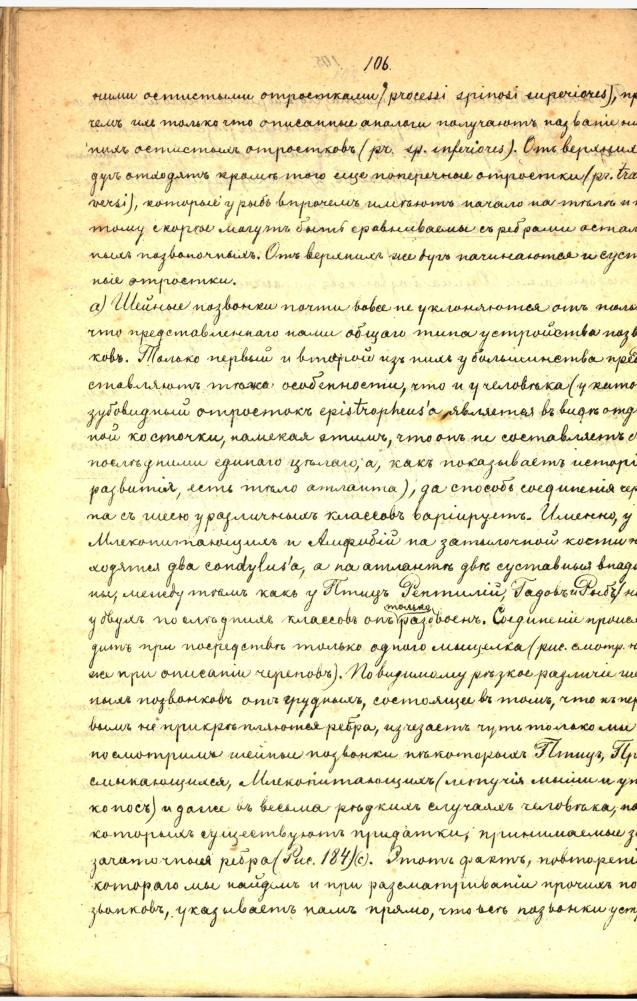 106.
ними остистыми отростками (processi spinosi superiores), пр
чемъ ихъ только что описанные аналоги получаютъ названіе ни
нихъ остистыхъ отростковъ (pr. sp. inferiores). Отъ верхнихъ
дугъ отходятъ кромѣ того еще поперечные отростки (pr. tra
versi), которые у рыбъ впрочемъ имѣютъ начало на тѣлѣ и п
тому скорѣе могутъ быть сравниваемы съ ребрами осталь
ныхъ позвоночныхъ. Отъ верхнихъ же дугъ начинаются и суст
ные отростки.
а) Шейные позвонки почти вовсе не уклоняются отъ толь
что представленнаго нами общаго типа устройства позв
ковъ. Только первый и второй изъ нихъ у большинства пред
ставляютъ тѣже особенности, что и у человѣка (у като
зубовидный отростокъ epistropheus'а, является въ видѣ отд
ной косточки, намекая этимъ, что онъ не составляетъ съ
послѣдними единаго цѣлаго, а, какъ показываетъ исторі
развитія, есть тѣло атланта), да способъ соединенія чер
па съ шеею у различныхъ классовъ варіируетъ. Именно, у
Млекопитающихъ и Амфибій на затылочной кости н
ходятся два condylus'а, а на атлантѣ двѣ суставныя впад
ны, между тѣмъ какъ у Птицъ, Рептилій, Гадовъ и Рыбъ (н
у двухъ послѣднихъ классовъ онъ только раздвоенъ. Соединеніе происх
дитъ при посредствѣ только одного мыщелка (рис. смотр. н
же при описаніи череповъ). Повидимому рѣзкое различіе ше
ныхъ позвонковъ отъ грудныхъ, состоящее въ томъ, что къ пер
вымъ не прикрѣпляются ребра, изчезаетъ чуть только мы
посмотримъ шейные позвонки нѣкоторыхъ Птицъ, Пре
смыкающихся, Млекопитающихъ (летучія мыши и ут
коносъ) и даже въ весьма рѣдкихъ случаяхъ человѣка, на
которыхъ существуютъ придатки, принимаемые за
зачаточныя ребра (Рис. 184) (с). Этотъ фактъ, повтореніе
котораго мы найдемъ и при разсматриваніи прочихъ по
звонковъ, указываетъ намъ прямо, что всѣ позвонки устр